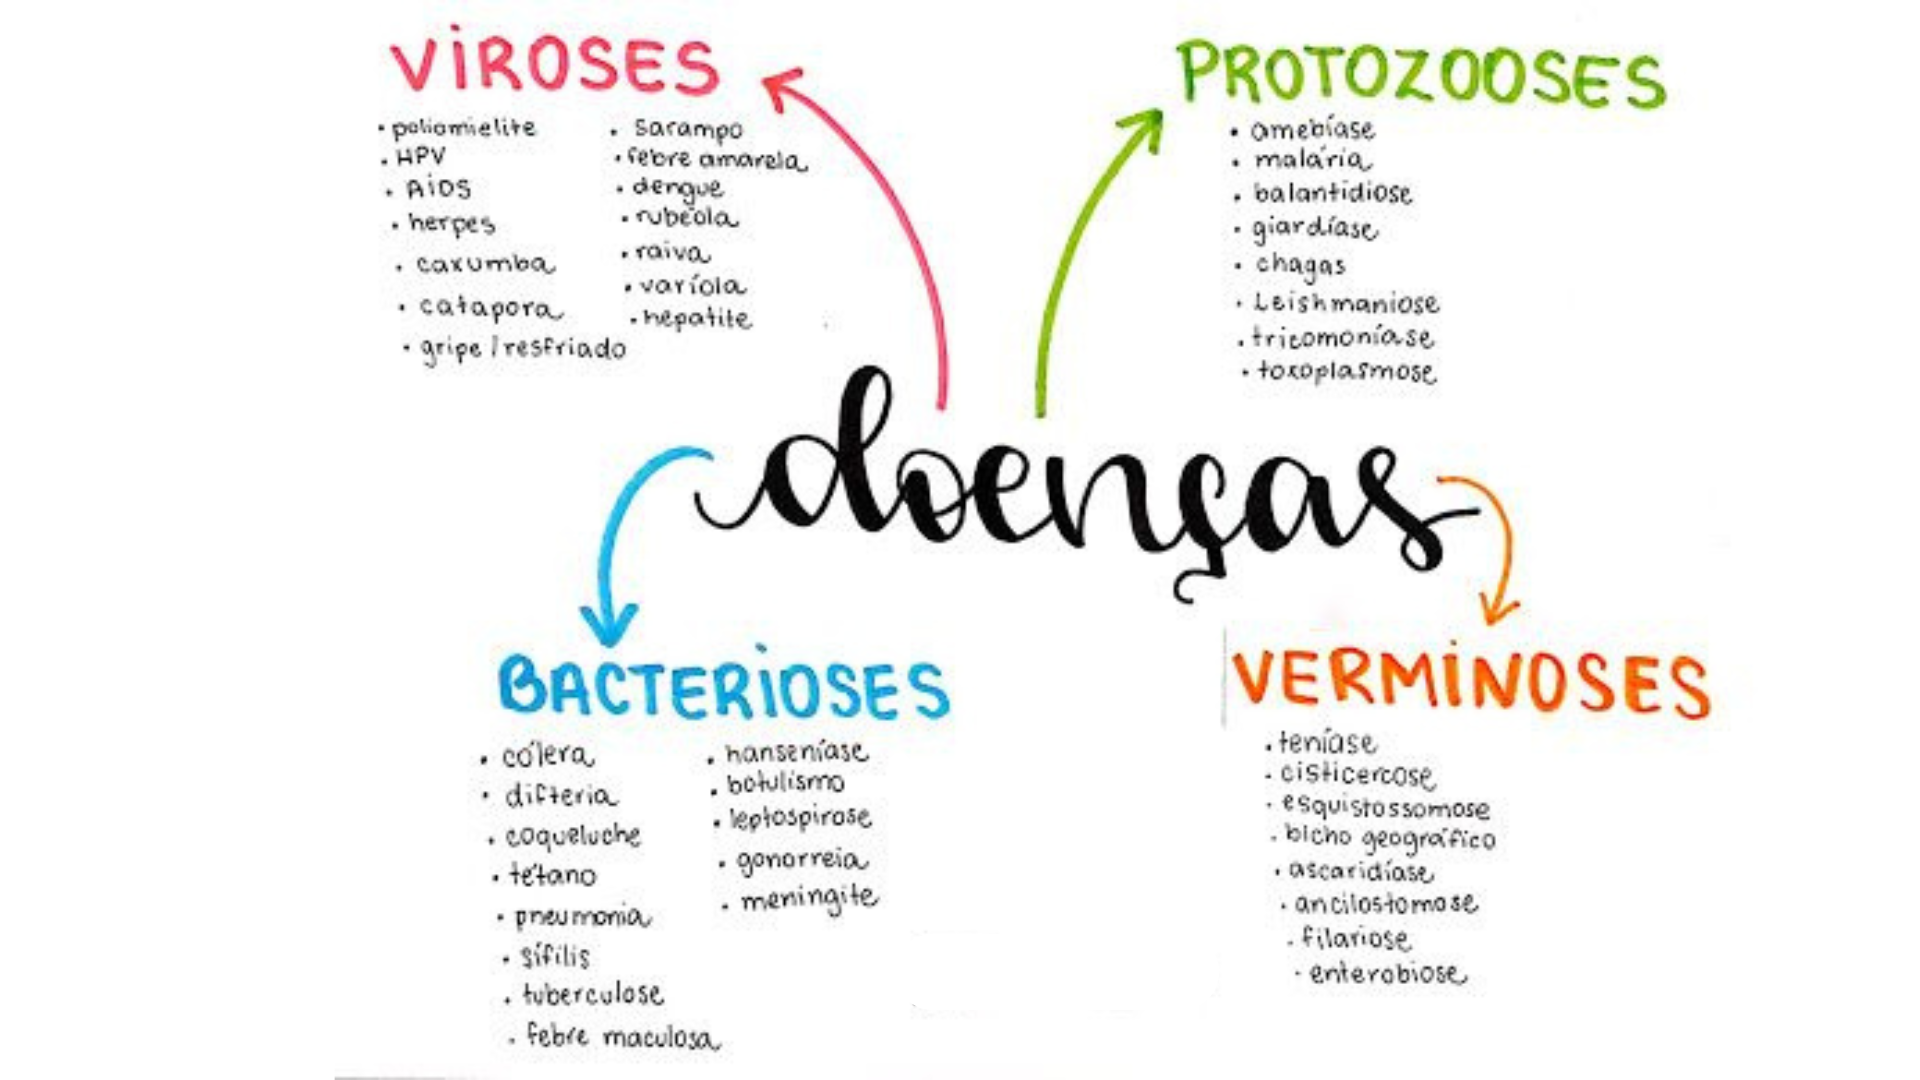 VIROSES
• poliomielite
• HPV
• AIDS
• herpes
• caxumba
• catapora
• gripe/resfriado
• sarampo
• febre amarela
• dengue
• rubéola
• raiva
• varíola
• hepatite
PROTOZOOSES
• amebíase
• malária
• balantidiose
• giardíase
• chagas
• Leishmaniose
• tricomoníase
• toxoplasmose
doenças
BACTERIOSES
• cólera
• difteria
• coqueluche
• tétano
• pneumonia
• sífilis
• tuberculose
• febre maculosa
• hanseníase
• botulismo
• leptospirose
• gonorreia
• meningite
VERMINOSES
• teníase
• cisticercose
• esquistossomose
• bicho geográfico
• ascaridíase
• ancilostomose
• filariose
• enterobiose